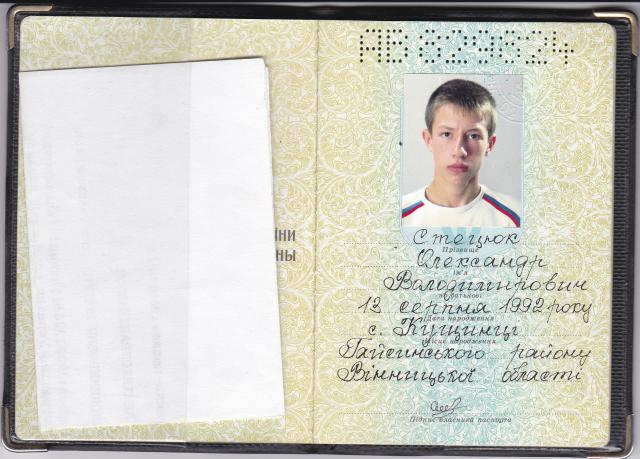 АВ 629624
їни
ны
Стецюк
Прізвище
Олександр
Ім'я
Володимирович
по батькові
13 серпня 1992 року
Дата народження
с. Кущинці
Місце народження
Гайсинського району
Вінницької області
Підпис власника паспорта